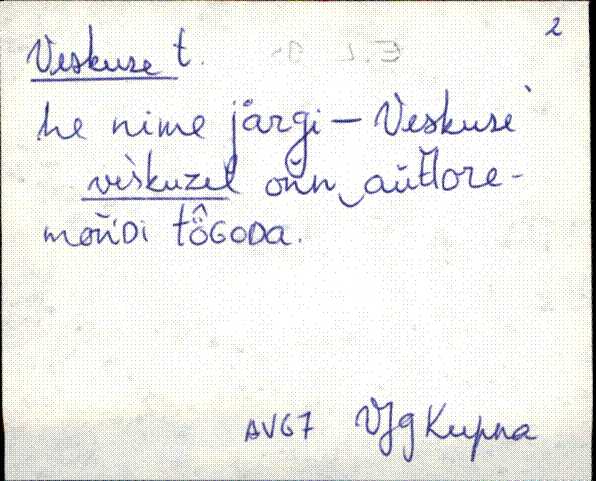 2
Veskuse t.
he nime järgi – Veskuse'
vèskuzel onn autlore-
monDi tôGODa.
AV67 VJg Kupna